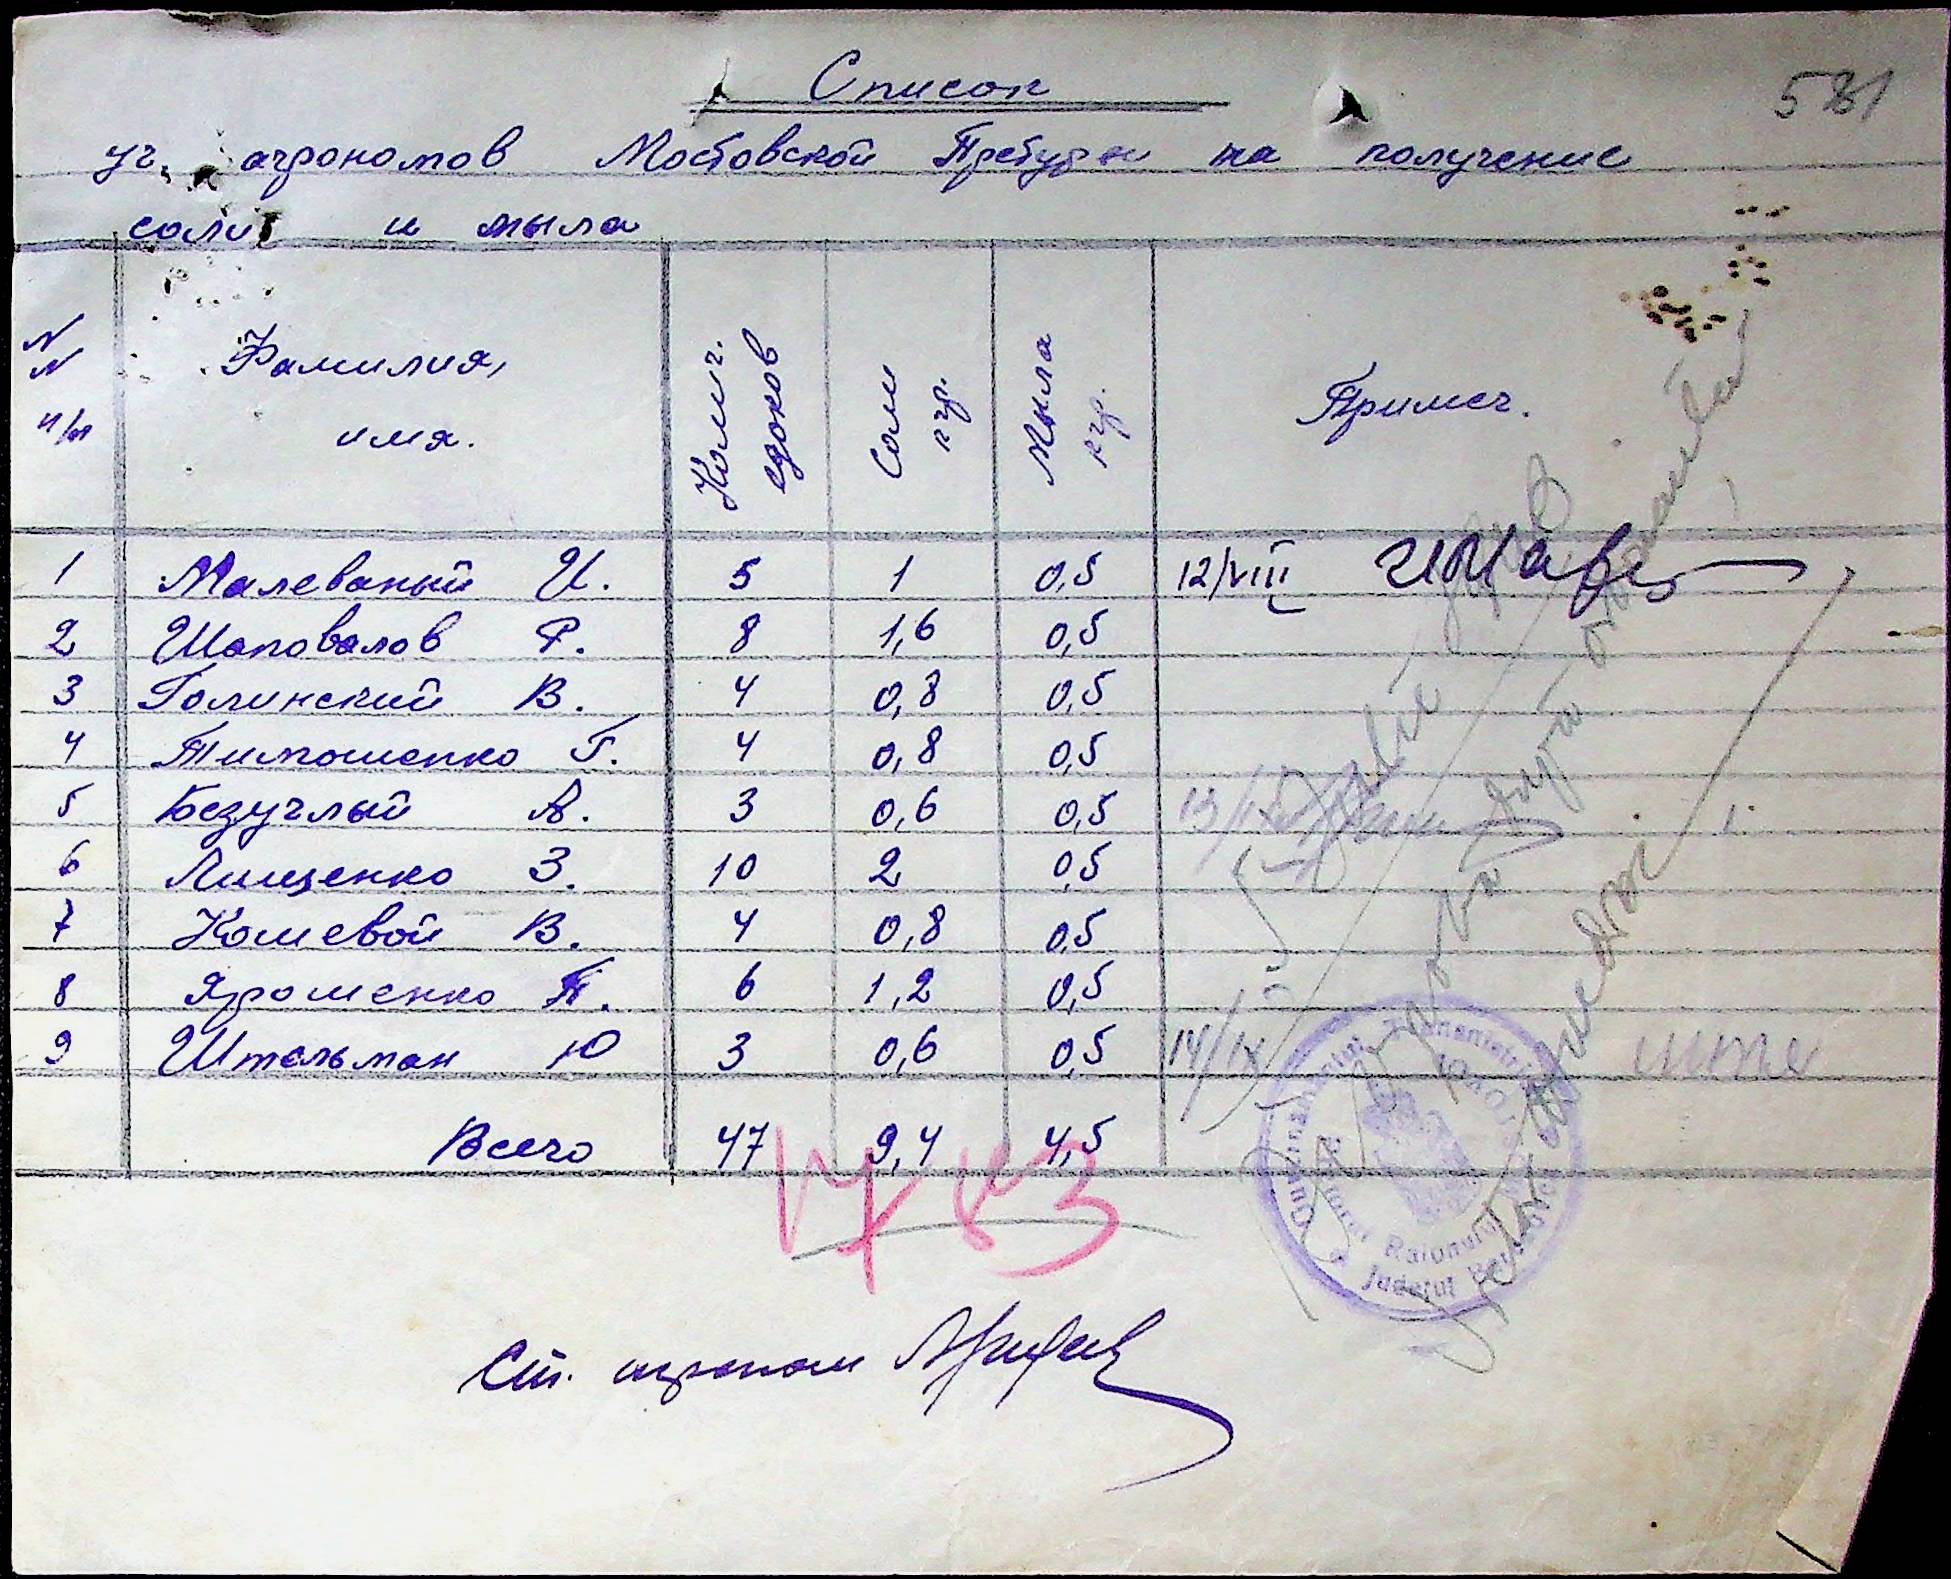 581
Список
уч. агрономов Мостовской Претуры на получение
соли и мыла
NN п/п Фамилия, имя. Колич. едоков Соли кгр. Мыла кгр. Примеч.
1 Малеваный И. 5 1 0,5 12/VIII
2 Шаповалов Р. 8 1,6 0,5
3 Голинский В. 4 0,8 0,5
4 Тимошенко Г. 4 0,8 0,5
5 Безуглый А. 3 0,6 0,5
6 Лищенко З. 10 2 0,5
7 Кошевой В. 4 0,8 0,5
8 Ярошенко П. 6 1,2 0,5
9 Штельман Ю 3 0,6 0,5 14/IX
Всего 47 9,4 4,5
Raionului
Judeţul
Ст. агроном